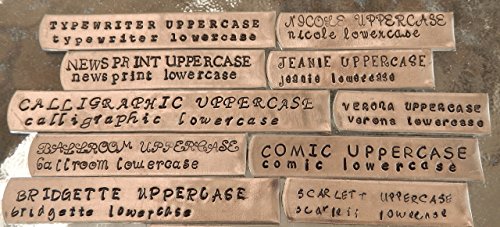 TYPEWRITER UPPERCASE
typewriter lowercase
NICOLE UPPERCASE
nicole lowercase
NEWS PRINT UPPERCASE
news print lowercase
JEANIE UPPERCASE
jeanie lowercase
CALLIGRAPHIC UPPERCASE
calligraphic lowercase
VERONA UPPERCASE
verona lowercase
BALLROOM UPPERCASE
ballroom lowercase
COMIC UPPERCASE
comic lowercase
BRIDGETTE UPPERCASE
bridgette lowercase
SCARLETT UPPERCASE
scarlett lowercase